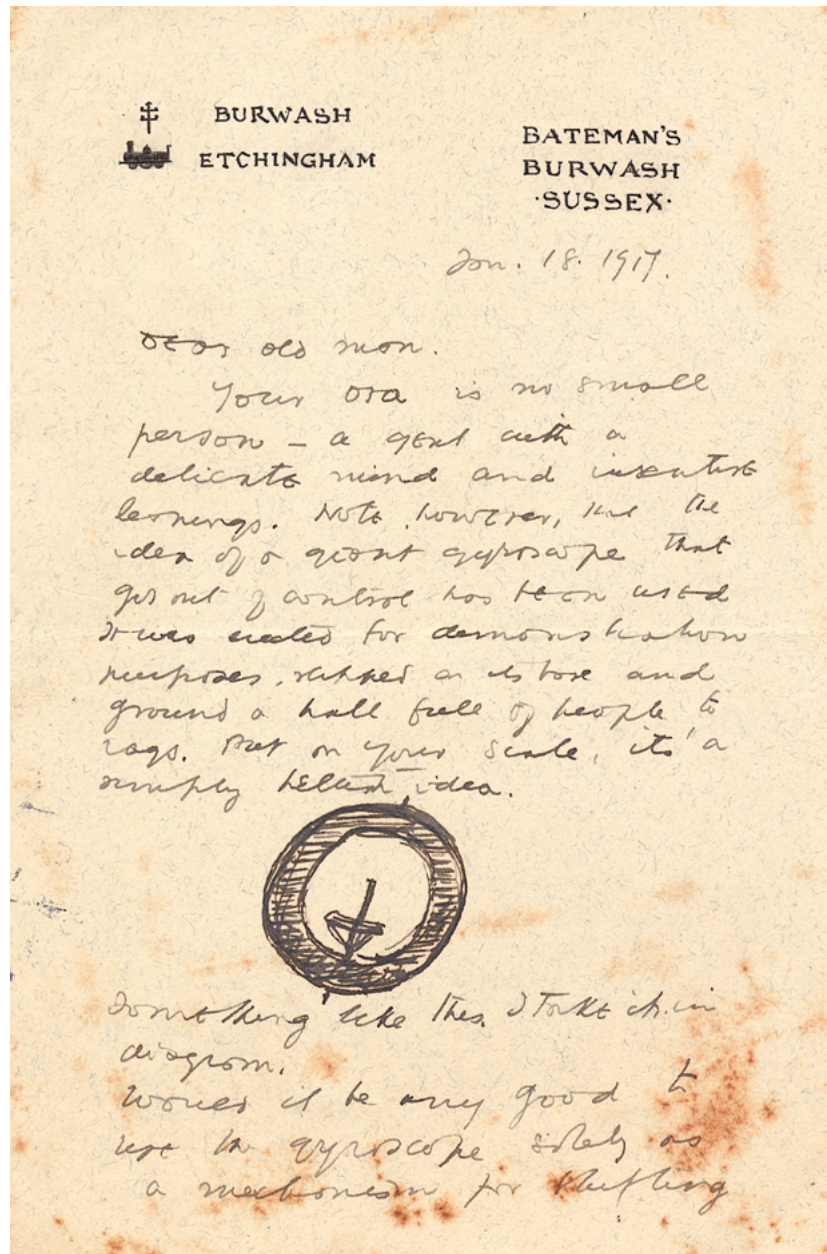 BURWASH
ETCHINGHAM
BATEMAN'S
BURWASH
·SUSSEX·
Jan. 18. 1917.
Dear old man.
Your is no small
person – a gent with a
delicate mind and inventive
learnings. Note, however, the
idea of a giant gyroscope that
got out of control has been used
It was for demonstration
purposes, slipped on its base and
ground a hall full of people to
rags. But on your scale, it's a
simply idea.
Something like this I take it in
diagram.
Would it be any good to
use the gyroscope solely as
a mechanism for shuffling